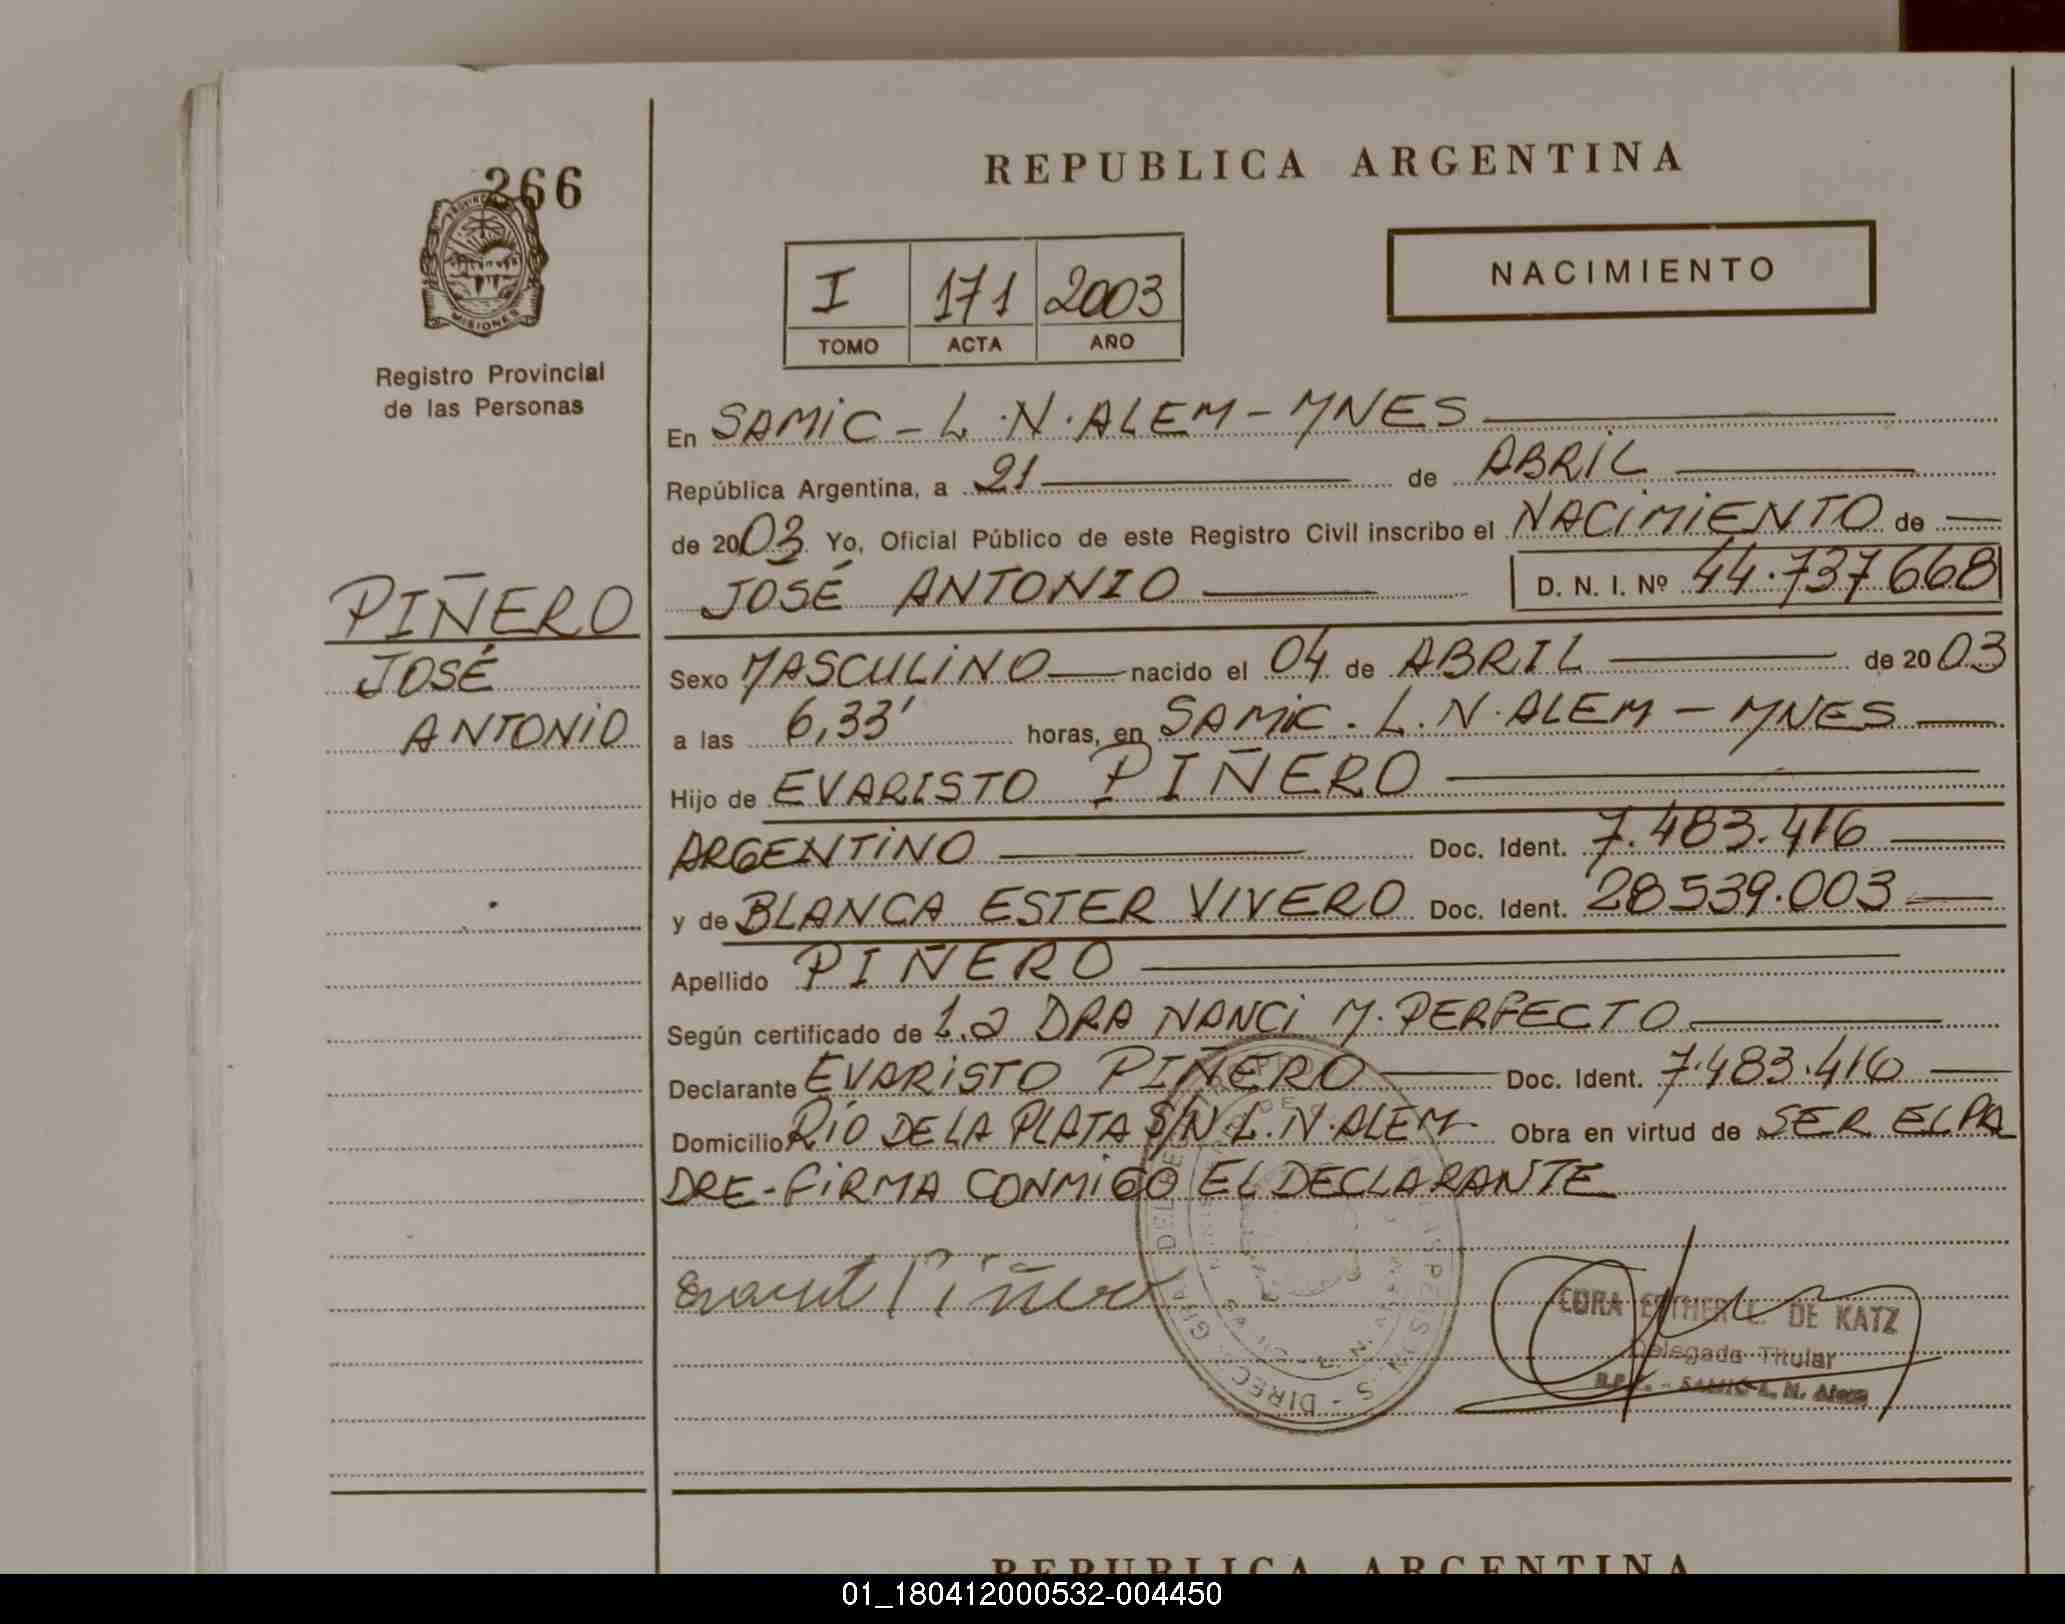 266
PROVINCIA
MISIONES
Registro Provincial
de las Personas
PIÑERO
JOSÉ
ANTONIO
REPUBLICA ARGENTINA
I 171 2003
TOMO ACTA AÑO
NACIMIENTO
En SAMIC - L.N. ALEM - MNES
República Argentina, a 21 de ABRIL
de 2003 Yo, Oficial Público de este Registro Civil inscribo el NACIMIENTO de
JOSÉ ANTONIO D. N. I. Nº 44.737.668
Sexo MASCULINO nacido el 04 de ABRIL de 2003
a las 6,33' horas, en SAMIC. L.N. ALEM - MNES
Hijo de EVARISTO PIÑERO
ARGENTINO Doc. Ident. 7.483.416
y de BLANCA ESTER VIVERO Doc. Ident. 28539.003
Apellido PIÑERO
Según certificado de DRA NANCI M. PERFECTO
Declarante EVARISTO PIÑERO Doc. Ident. 7.483.416
Domicilio RIO DE LA PLATA S/N L.N. ALEM - Obra en virtud de SER EL PA
DRE - FIRMA CONMIGO EL DECLARANTE
Piñero
ESTHER L. DE KATZ
Delegada Titular
SAMIC L. N. Alem
REPUBLICA ARGENTINA
01_180412000532-004450